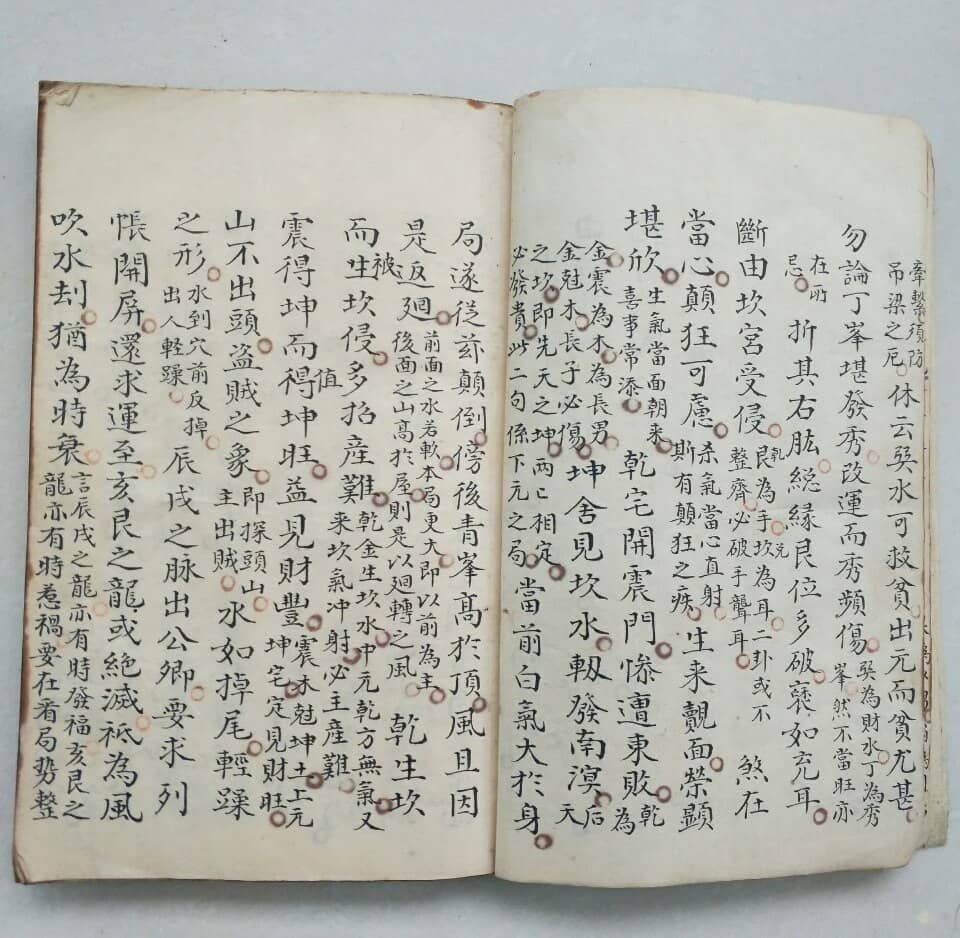 牽繫須防
吊梁之厄
休云巽水可救貧出元而貧尤甚
勿論丁峯堪發秀改運而秀頻傷
巽為財水丁為秀
峯然不當旺亦
在所
忌
折其右肱緫緣艮位多破褒如充耳
斷由坎宮受侵
艮為手坎為耳二卦或不
整齊必破手聾耳
煞在
當心顛狂可慮
杀氣當心直射
斯有顛狂之疾
生来覿面榮顯
堪欣
生氣當面朝来
喜事常添
乾宅開震門慘遭東敗
乾
為
金震為木為長男
金尅木長子必傷
坤舍見坎水軔發南溟
后
天
之坎即先天之坤兩〻相定
必發貴此二句係下元之局
當前白氣大於身
局遂從茲顛倒傍後青峯髙於頂風且因
是返廻
前面之水若軟本局更大即以前為主
後面之山髙於屋則是以廻轉之風
乾生坎
而生被坎侵多招産難
乾金生坎水中元乾方無氣又
来坎氣冲射必主産難
震得坤而得值坤旺益見財豐
震木尅坤土上元
坤宅定見財旺
山不出頭盗賊之象
即探頭山
主出賊
水如掉尾輕躁
之形
水到穴前反掉
出人輕躁
辰戌之脉出公卿要求列
帳開屏還求運至亥艮之龍或絶滅祗為風
吹水刦猶為時衰
言辰戌之龍亦有時發福亥艮之
龍亦有時惹禍要在看局势整